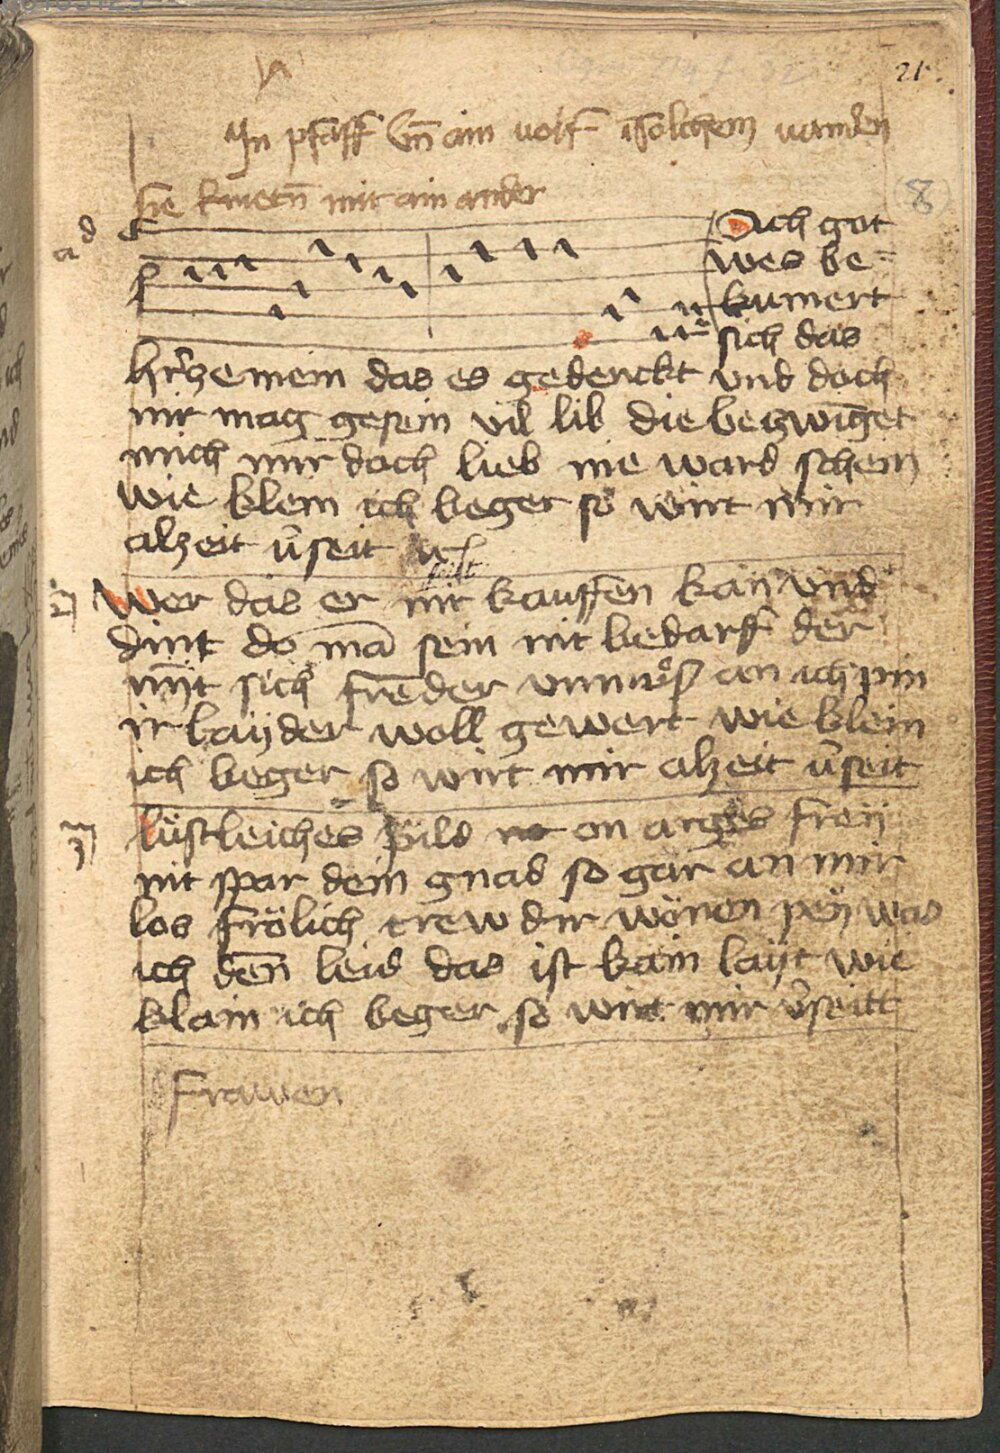 21.
In pfaff un̄ ain wolf
sie kmetn̄ mit ain ander
8
a d
Och got
wes be=
kumert
sich das
hr̄cze mein das es gedenckt vnd doch
nit mag gesein vil lib die beczwīget
mich mir doch lieb nie ward schein
wie klein ich beger so wirt mir
alzeit v̄seit
2
Wer das er nit kauffen kan vnd
dint do mā sein nit bedarff der
nȳt sich frēder vnmůsz an ich pin
ir layder woll gewert wie klein
ich beger so wirt mir alzeit v̄seit
3
lüstleiches pild on arges freÿ
nit spar dein gnad so gar an mir
los frölich trew dir wonen peÿ was
ich den̄ leid das ist kain laÿt wie
klain ich beger so wirt mir v̄seitt
Frawen